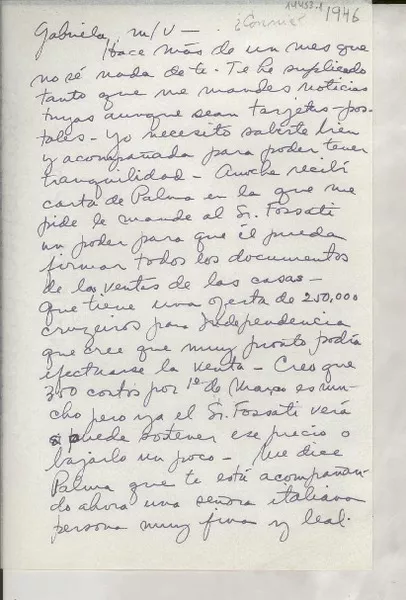 19453.1
1946
¿Connie?
Gabriela, m/v —
Hace más de un mes que
no sé nada de te. Te he suplicado
tanto que me mandes noticias
tuyas aunque sean tarjetas-pos-
tales — Yo necesito saberte bien
y acompañada para poder tener
tranquilidad — Anoche recibí
carta de Palma en la que me
pide le mande al Sr. Fossati
un poder para que él pueda
firmar todos los documentos
de las ventas de las casas —
que tiene una oferta de 250.000
cruzeiros para Independencia
que cree que muy pronto podía
efectuarse la venta — Creo que
300 contos por 1º de Março es mu-
cho pero ya el Sr. Fossati verá
puede sostener ese precio o
bajarlo un poco — Me dice
Palma que te está acompañan-
do ahora una señora italiana
persona muy fina y leal.